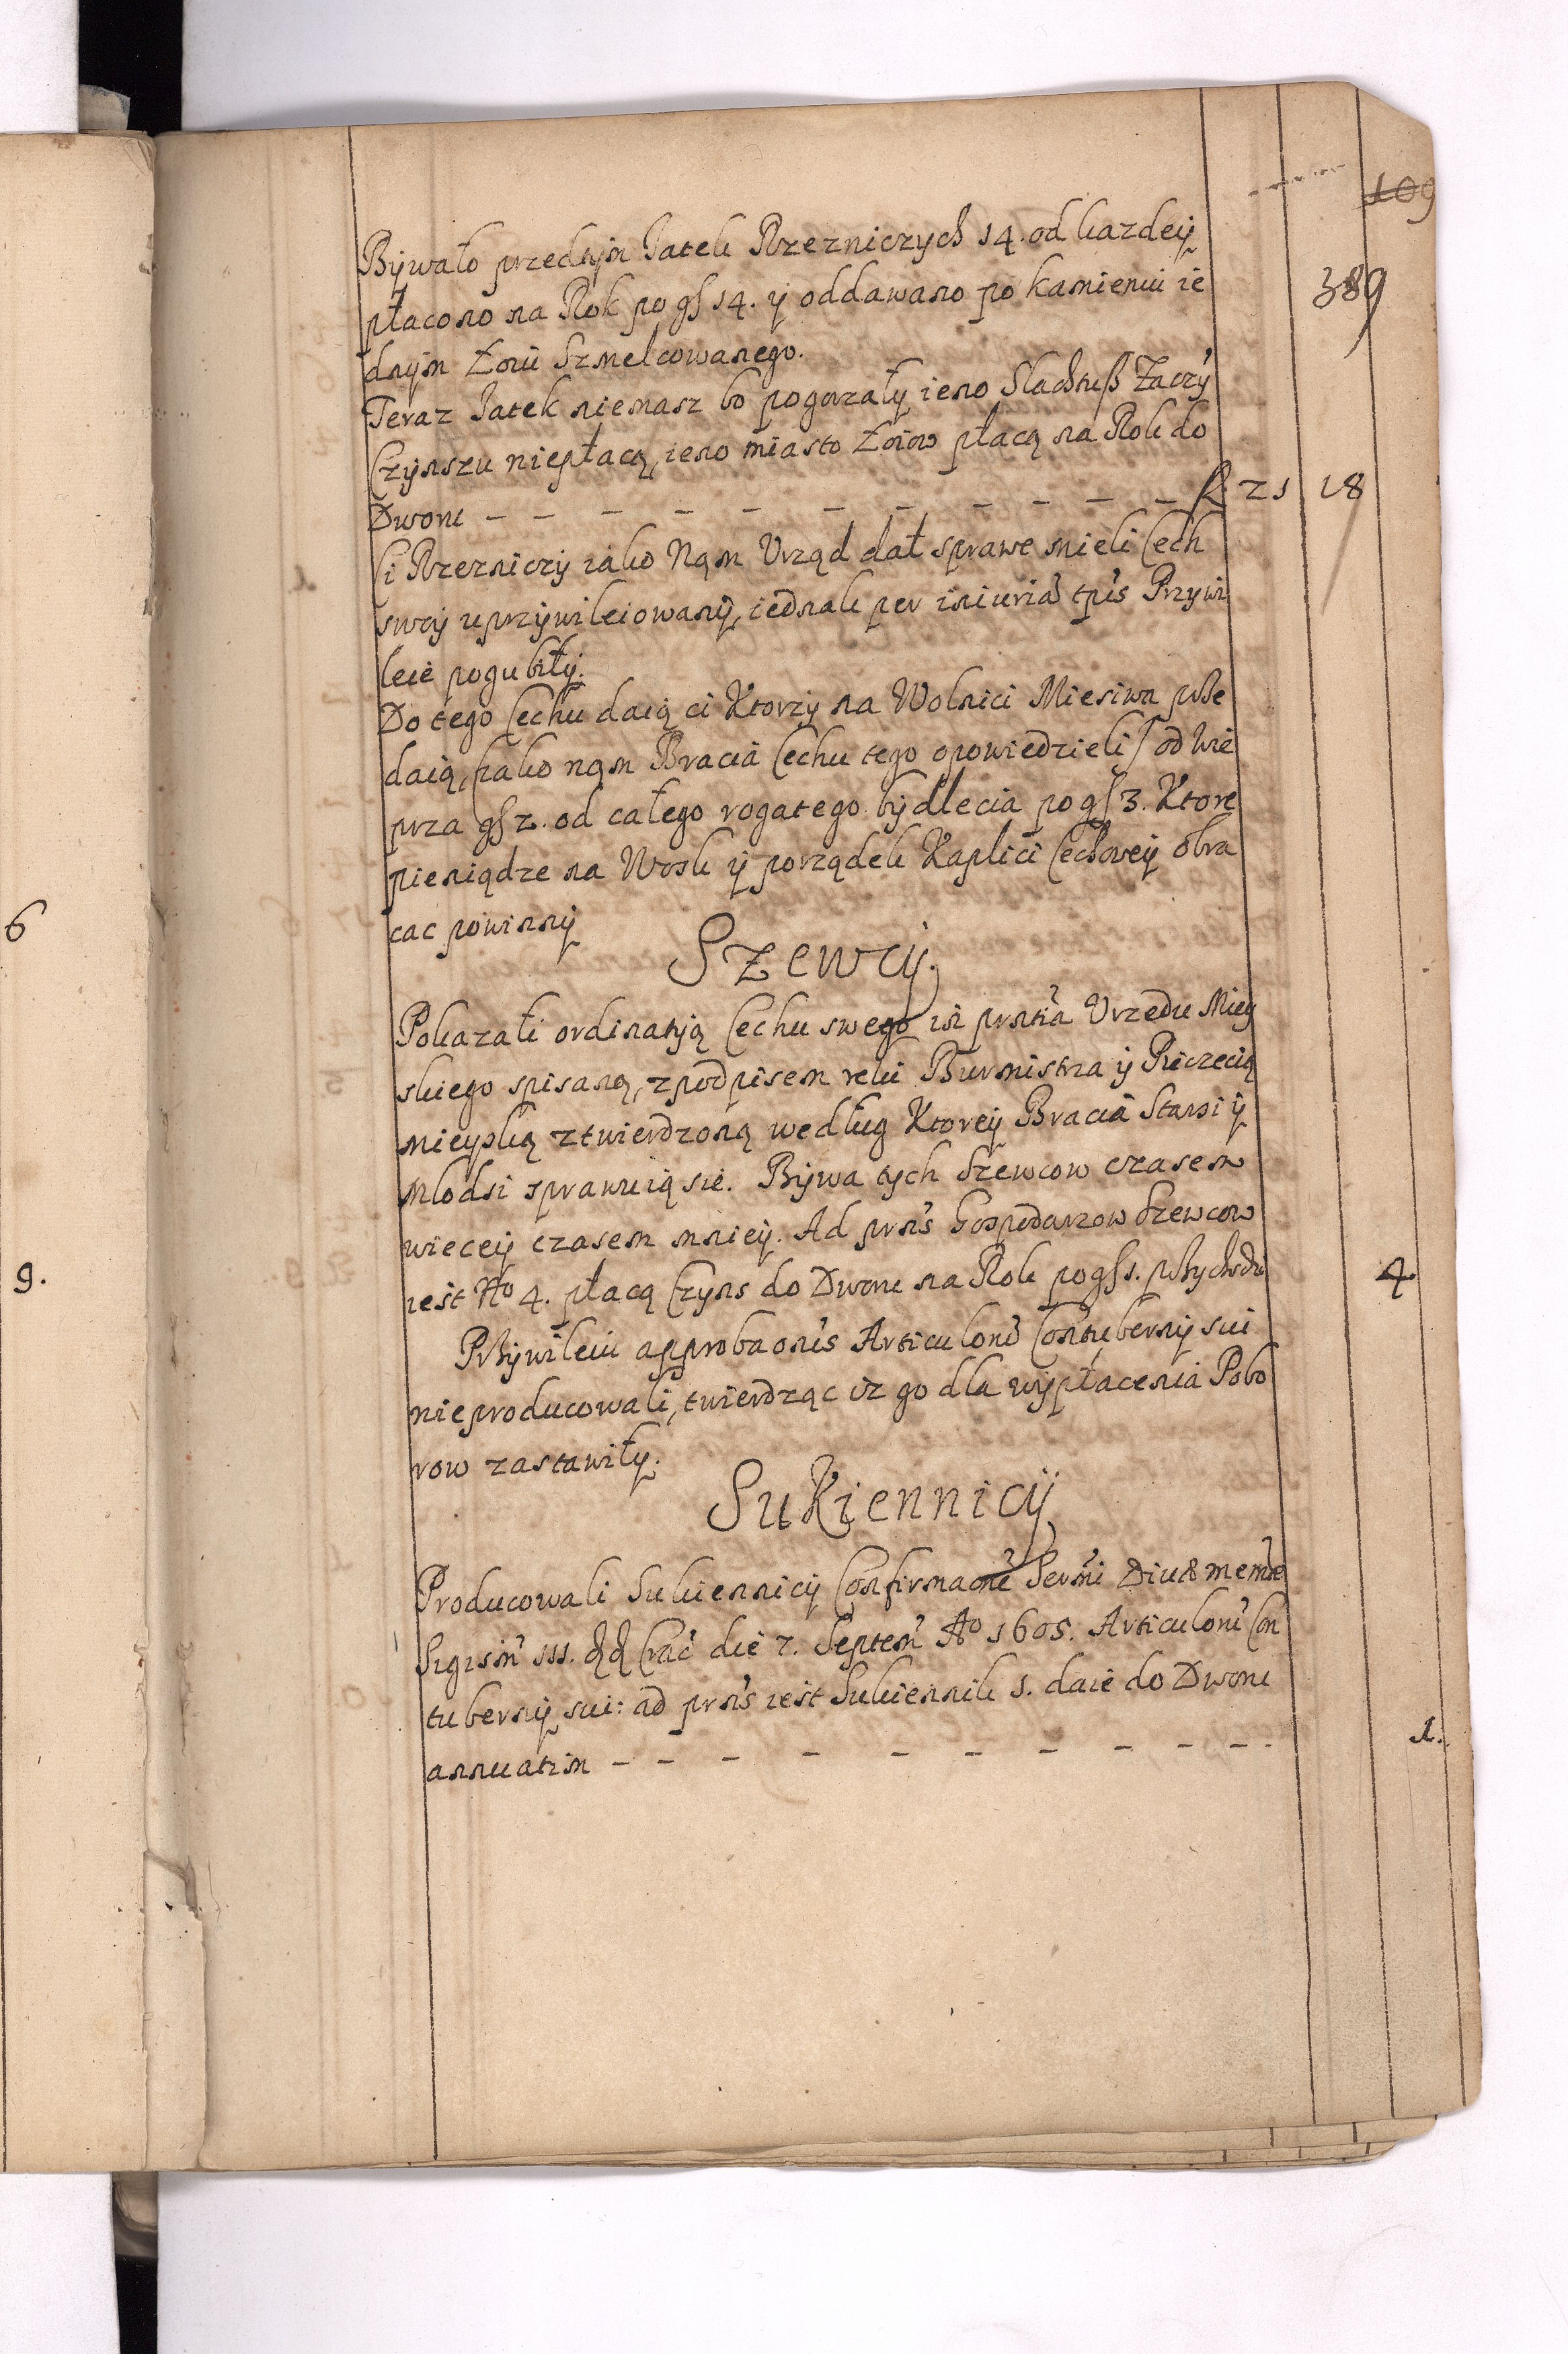 109
389
Bywało przedtym Jatek Rzezniczych 14. od kazdey
płacono na Rok po gß 14. y oddawano po kamieniu ie
dnym Łoiu Szmelcowanego.
Teraz Jatek niemasz bo pogorzały, ieno Slachtuß Zaczy
Czynszu niepłacą, ieno miasto Łoiow płacą na Rok do
Dworu – – – – – – – – – – – f 21 18
Ci Rzezniczy iako Nąm Vrząd dał sprawe mieli Cech
swoy uprzywileiowany, iednak per iniuria tpis Przywi
leie pogubiły.
Do tego Cechu daią ci Ktorzy na Wolnici Miesiwa prze
daią, (iako nąm Bracia Cechu tego opowiedzieli) od Wie
prza gß 2. od całego rogatego bydlecia po gß 3. Ktore
pieniądze na Wosk y porządek Kaplici Cechowey obra
cac powinny
Szewcy.
Pokazali ordinatyą Cechu swego in prntia Vrzedu Miey
skiego spisaną, z podpisem reki Burmistrza y Pieczecią
mieyską ztwierdzoną według Ktorey Bracia Starsi y
Mlodsi sprawuią sie. Bywa tych Szewcow czasem
wiecey czasem mniey. Ad prns Gospodarzow Szewcow
iest No 4. płacą Czyns do Dworu na Rok po gß 1. przychodzi
4
Przywileiu approbaonis Articulorũ Contuberny sui
nieproducowali, twierdząc iz go dla wypłacenia Pobo
row zastawiły.
Sukiennicy
Producowali Sukiennicy Confirmaonẽ Sermi Divæ memæ
Sigism III. dd Crac die 7. Septem Ao 1605. Articulorũ Con
tuberny sui: ad prns iest Sukiennik 1. daie do Dworu
annuatim – – – – – – – – – –
1.
6
9.